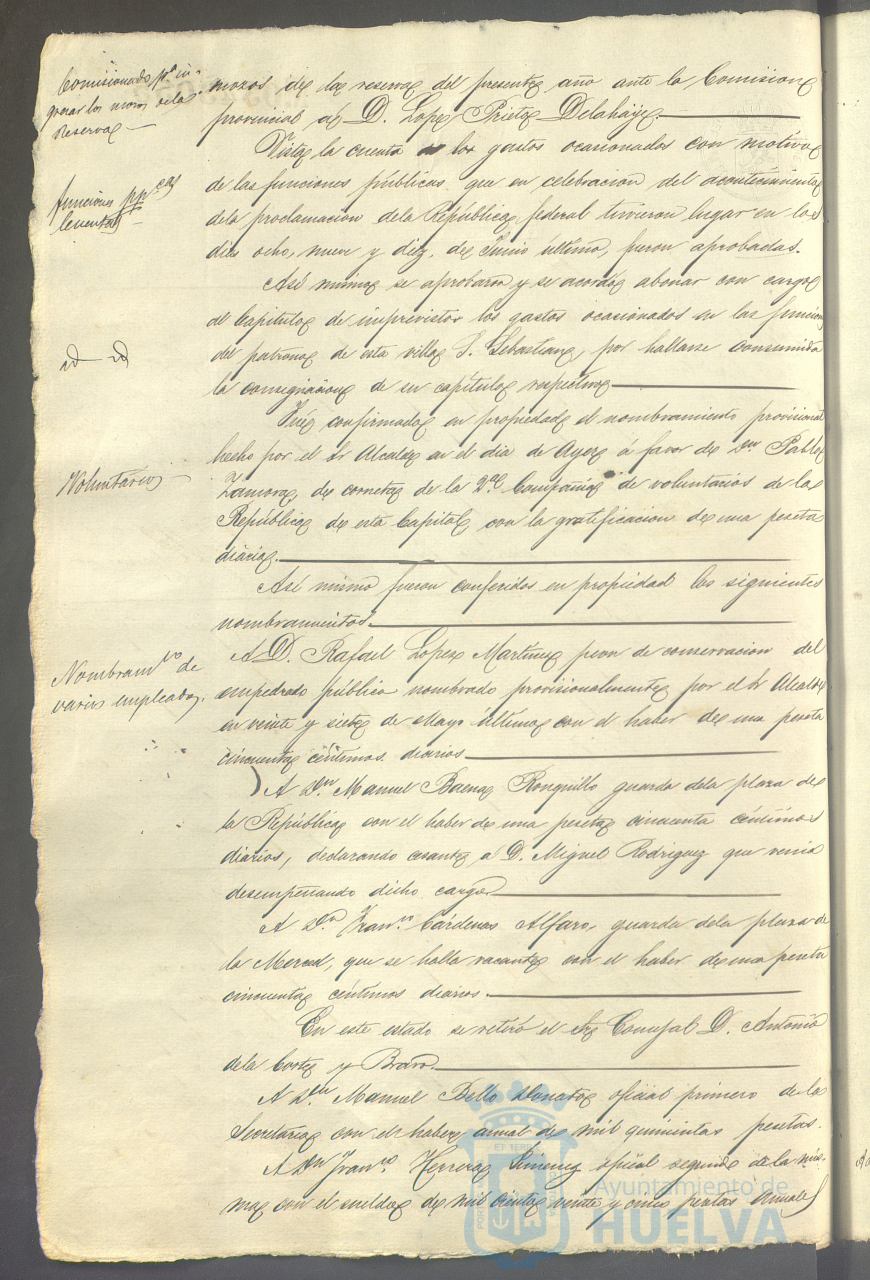 Comisionado pª in-
gresar los mozos de la
Reserva
mozos de la reserva del presente año ante la Comision
provincial a D. Lope Prieto Delahaye
funciones ppcas
Cuentas
Vista la cuenta de los gastos ocasionados con motivo
de las funciones públicas que en celebracion del acontecimiento
de la proclamacion de la República federal tuvieron lugar en los
dias ocho, nueve y diez de Junio ultimo, fueron aprobadas.
id id
Asi mismo se aprobaron y se acordó abonar con cargo
al Capitulo de imprevistos los gastos ocasionados en las funciones
del patrono de esta villa S. Sebastian, por hallarse consumida
la consignacion de su capítulo respectivo
Voluntarios
Fué confirmado en propiedad el nombramiento provisional
hecho por el Sr Alcalde en el dia de Ayer á favor de Dn Pablo
Zamora, de corneta de la 2ª Compañia de voluntarios de la
República de esta Capital con la gratificacion de una peseta
diaria.
Así mismo fueron conferidos en propiedad los siguientes
nombramientos.
Nombramto de
varios empleados.
A D. Rafael Lopez Martinez peon de conservacion del
empedrado público nombrado provisionalmente por el Sr Alcalde
en veinte y siete de Mayo último con el haber de una peseta
cincuenta céntimos diarios
A Dn Manuel Baena Ronquillo guarda de la plaza de
la República con el haber de una peseta cincuenta céntimos
diarios, declarando cesante á D. Miguel Rodriguez que venia
desempeñando dicho cargo
A Dn Franco Cárdenas Alfaro, guarda de la plaza de
la Merced, que se halla vacante con el haber de una peseta
cincuenta céntimos diarios.
En este estado se retiró el Sr Concejal D. Antonio
de la Corte y Bravo.
A Dn Manuel Bello Donato oficial primero de la
Secretaria con el haber anual de mil quinientas pesetas.
A Dn Franco Herrera Jimenez oficial segundo de la mis-
ma con el sueldo de mil ciento veinte y cinco pesetas anuales
Ayuntamiento de
HUELVA